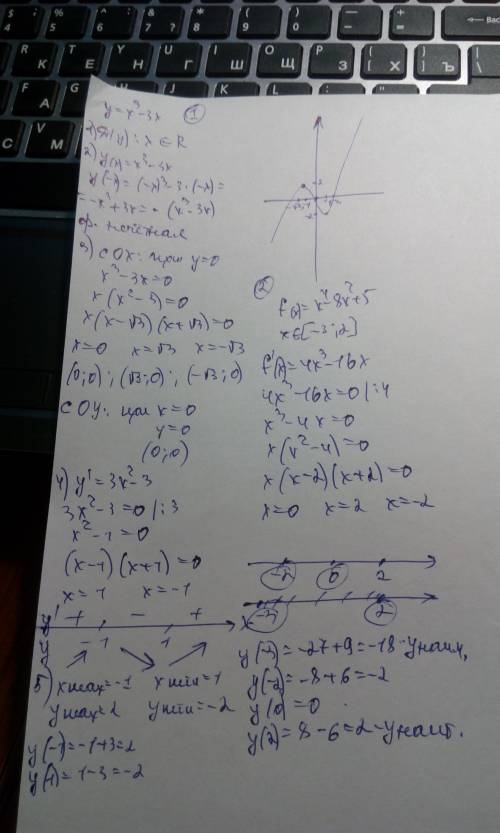 y=x³-3x ①
1) D(y): x ∈ R
2) y(x)=x³-3x
y(-x)=(-x)³-3·(-x)=
=-x³+3x=-(x³-3x)
ф. нечетная
3) с OX: при y=0
x³-3x=0
x(x²-3)=0
x(x-√3)(x+√3)=0
x=0 x=√3 x=-√3
(0;0); (√3;0); (-√3;0)
с OY: при x=0
y=0
(0;0)
4) y'=3x²-3
3x²-3=0 |:3
x²-1=0
(x-1)(x+1)=0
x=1 x=-1
y' + - +
y -1 1 x
5) xmax=-1 xmin=1
ymax=2 ymin=-2
y(-1)=-1+3=2
y(1)=1-3=-2
②
f(x)=x⁴-8x²+5
x∈[-3;2]
f'(x)=4x³-16x
4x³-16x=0 |:4
x³-4x=0
x(x²-4)=0
x(x-2)(x+2)=0
x=0 x=2 x=-2
-2 0 2
-3 2
y(-3)=-27+9=-18-yнаим,
y(-2)=-8+6=-2
y(0)=0
y(2)=8-6=2-yнаиб.